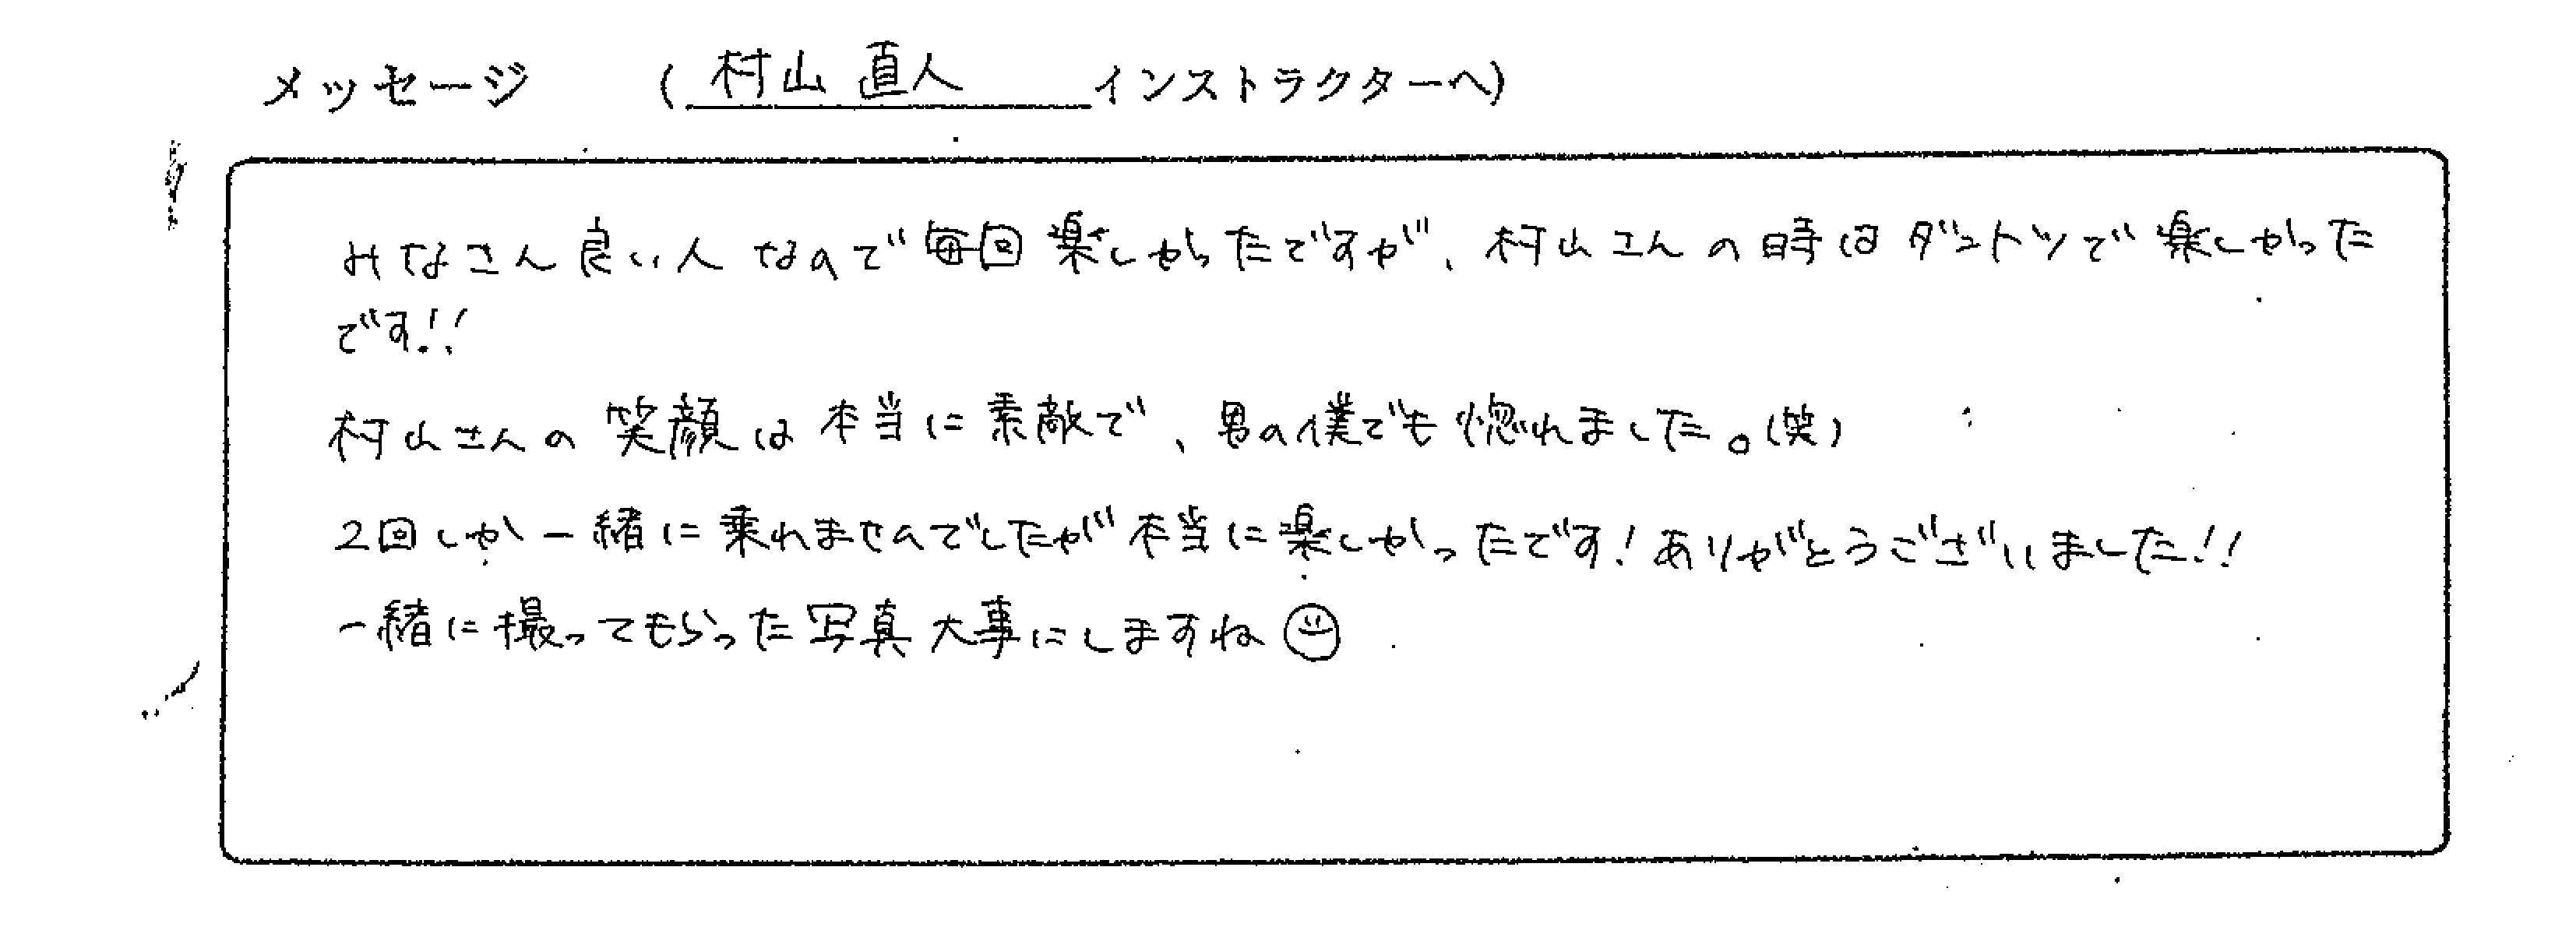 メッセージ （村山 直人 インストラクターへ）
みなさん良い人なので毎回楽しかったですが、村山さんの時はダントツで楽しかった
です!!
村山さんの笑顔は本当に素敵で、男の僕でも惚れました。(笑)
2回しか一緒に乗れませんでしたが本当に楽しかったです!ありがとうございました!!
一緒に撮ってもらった写真大事にしますね☺